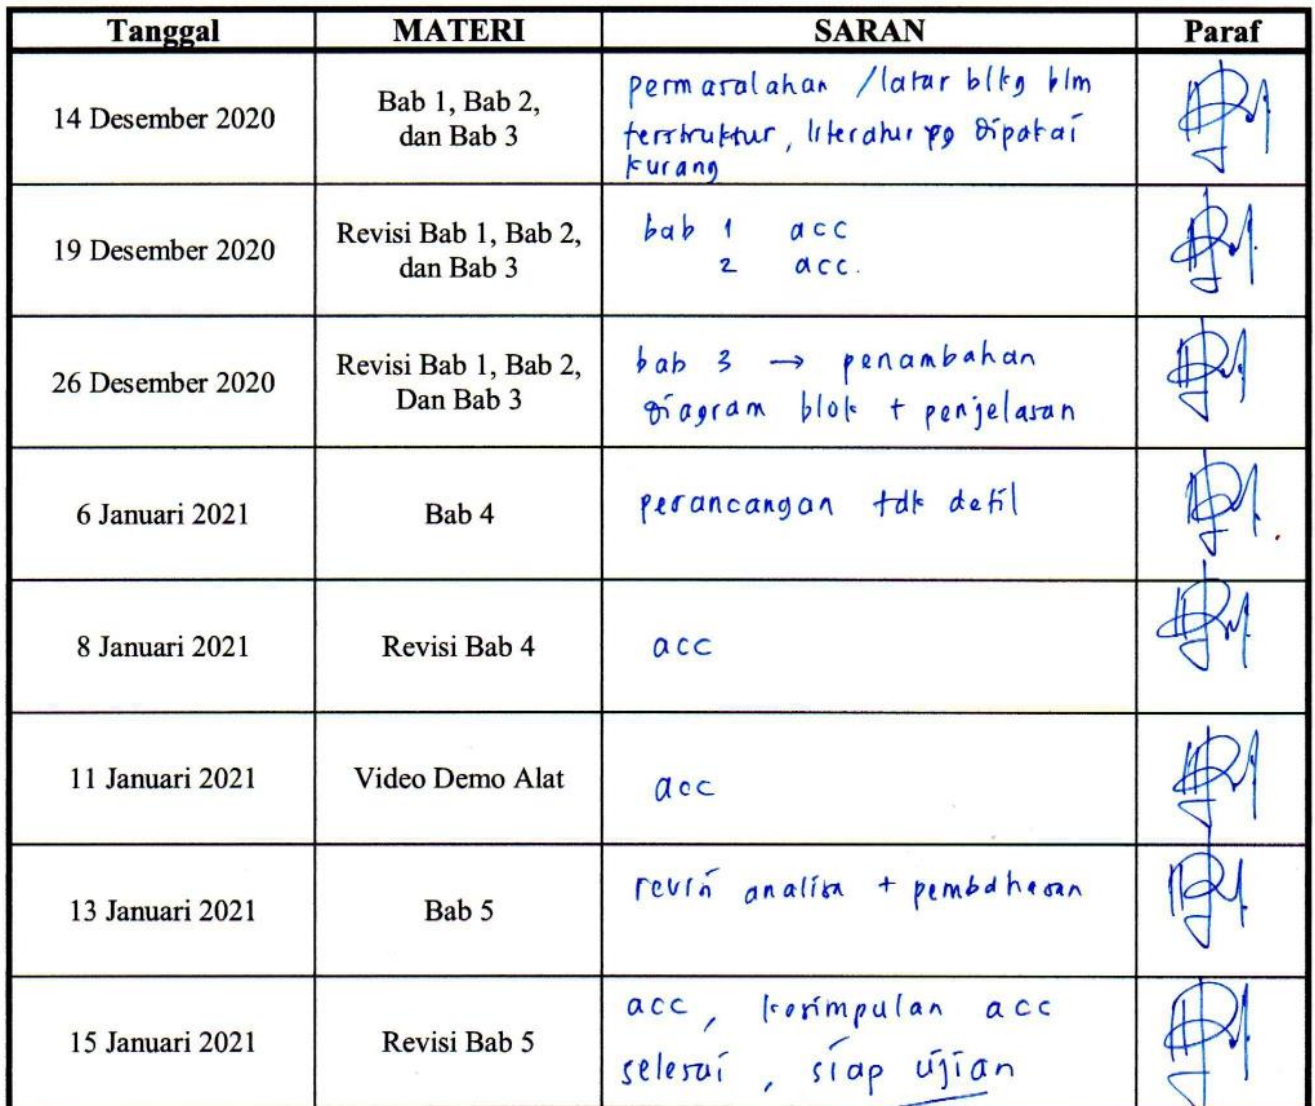 Tanggal MATERI SARAN Paraf
14 Desember 2020
Bab 1, Bab 2,
dan Bab 3
permasalahan / latar blkg blm
terstruktur, literatur yg dipakai
kurang
19 Desember 2020
Revisi Bab 1, Bab 2,
dan Bab 3
bab 1 acc
2 acc.
26 Desember 2020
Revisi Bab 1, Bab 2,
Dan Bab 3
bab 3 → penambahan
diagram blok + penjelasan
6 Januari 2021
Bab 4
perancangan tdk detil
8 Januari 2021
Revisi Bab 4
acc
11 Januari 2021
Video Demo Alat
acc
13 Januari 2021
Bab 5
revisi analisa + pembahasan
15 Januari 2021
Revisi Bab 5
acc, kesimpulan acc
selesai, siap ujian